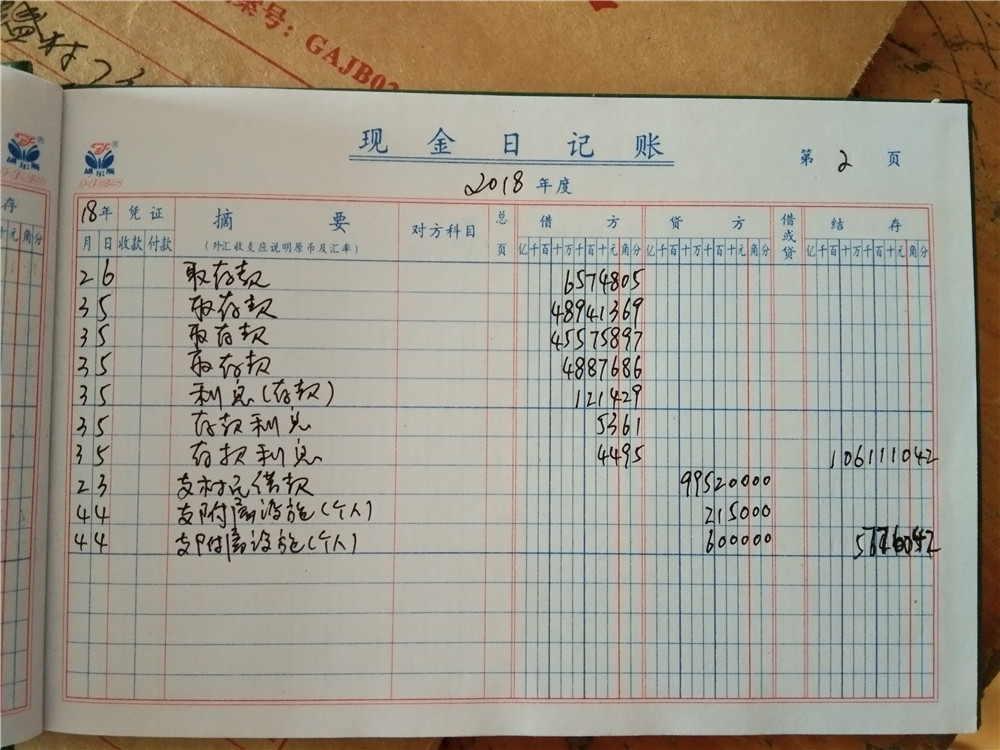 案号：GAJB02
现金日记账
第 2 页
2018 年度
存
18年 凭证 摘要 对方科目 总页 借方 贷方 借或贷 结存
月 日 收款 付款 （外汇收支应说明原币及汇率） 亿千百十万千百十元角分 亿千百十万千百十元角分 亿千百十万千百十元角分
2 6 取存款 6574805
3 5 取存款 48941369
3 5 取存款 45575897
3 5 取存款 4887686
3 5 利息(存款) 121429
3 5 存款利息 5361
3 5 存款利息 4495 106111042
2 3 支村民借款 99520000
4 4 支附属设施(个人) 215000
4 4 支附属设施(个人) 600000